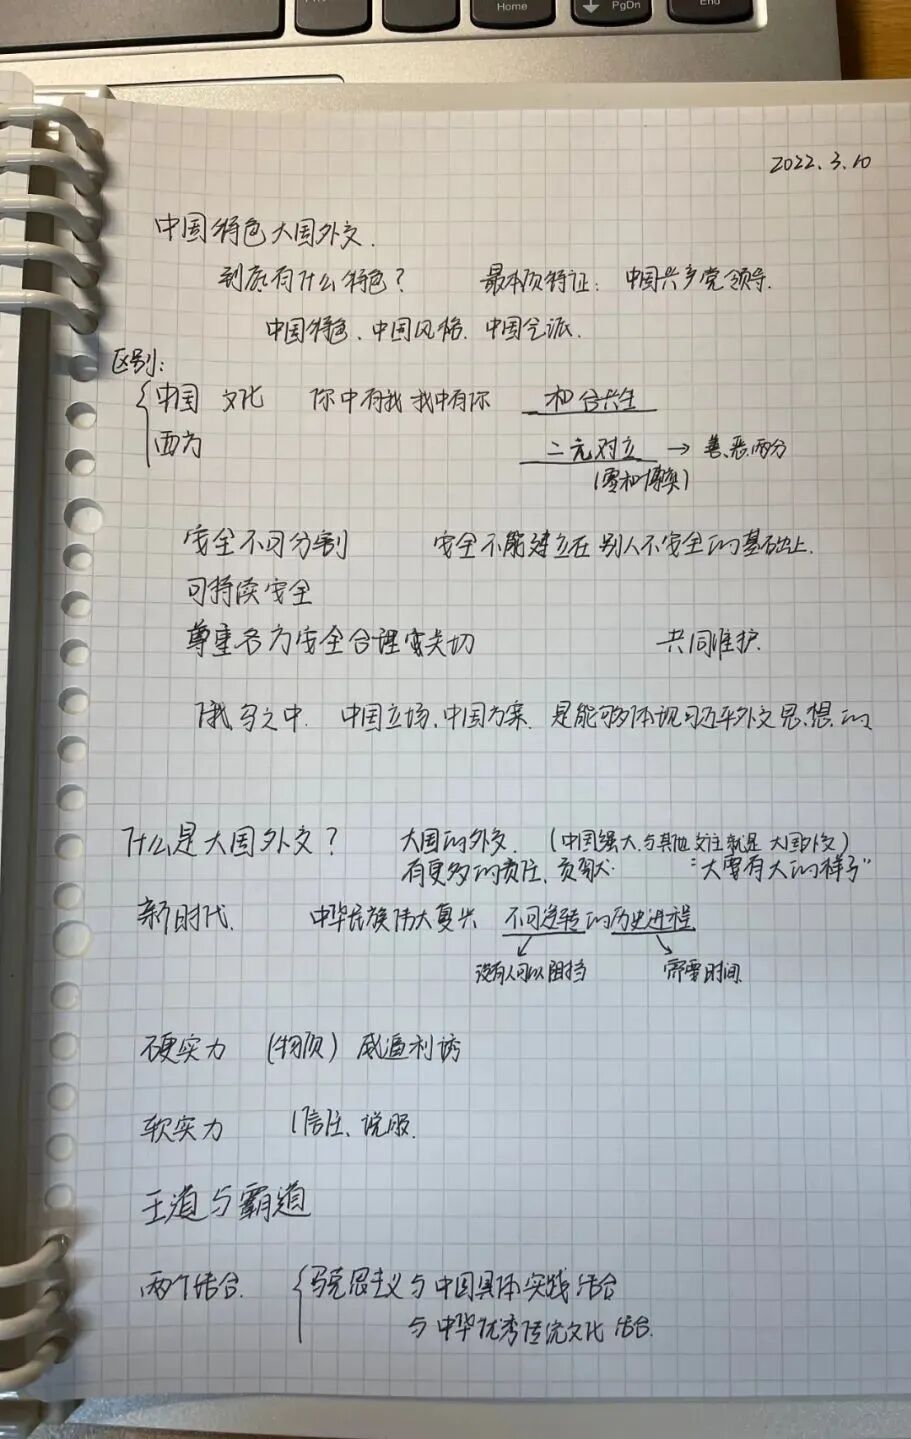 Home
PgDn
End
2022.3.10
中国特色大国外交.
到底有什么特色? 最本质特征: 中国共产党领导.
中国特色、中国风格. 中国气派.
区别:
中国 文化 你中有我 我中有你 和合共生
西方 二元对立 → 善、恶两分
(零和博弈)
安全不可分割 安全不能建立在别人不安全的基础上.
可持续安全
尊重各方安全合理关切 共同维护.
俄乌之中. 中国立场、中国方案. 是能够体现习近平外交思想的
什么是大国外交? 大国的外交. (中国强大、与其他交往就是大国外交)
有更多的责任、贡献. "大要有大的样子"
新时代. 中华民族伟大复兴 不可逆转的历史进程.
没有人可以阻挡 需要时间.
硬实力 (物质) 威逼利诱
软实力 信任、说服.
王道与霸道
两个结合. 马克思主义与中国具体实践结合
与中华优秀传统文化结合.